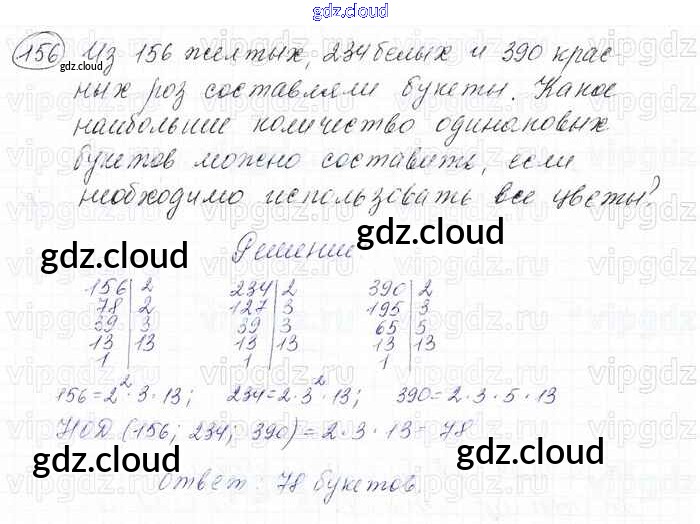 gdz.cloud
156 Из 156 желтых, 234 белых и 390 крас-
gdz.cloud
ных роз составляли букеты. Какое
наибольшие количество одинаковых
букетов можно составить, если
необходимо использовать все цветы?
gdz.cloud
Решение
gdz.cloud
156 | 2 234 | 2 390 | 2
78 | 2 127 | 3 195 | 3
39 | 3 39 | 3 65 | 5
13 | 13 13 | 13 13 | 13
1 | 1 | 1 |
156 = 2² · 3 · 13; 234 = 2 · 3² · 13; 390 = 2 · 3 · 5 · 13
НОД (156; 234; 390) = 2 · 3 · 13 = 78
gdz.cloud gdz.cloud
Ответ: 78 букетов.